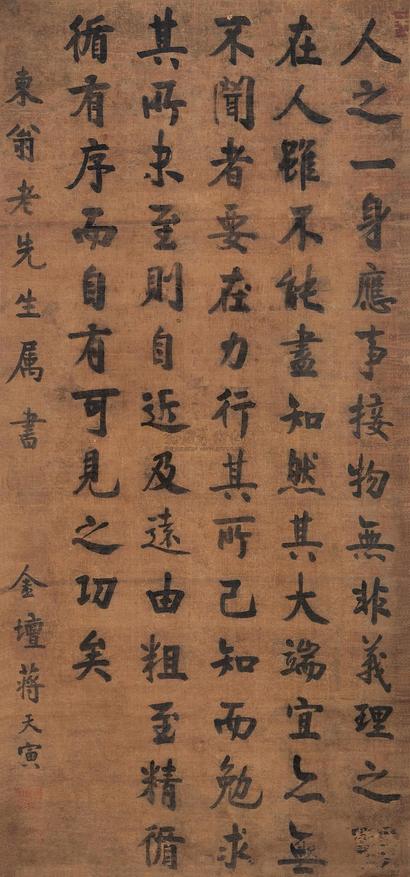 人之一身應事接物無非義理之
在人雖不能盡知然其大端宜亦無
不聞者要在力行其所已知而勉求
其所未至則自近及遠由粗至精循
循有序而自有可見之功矣
東翁老先生属書 金壇蔣天寅